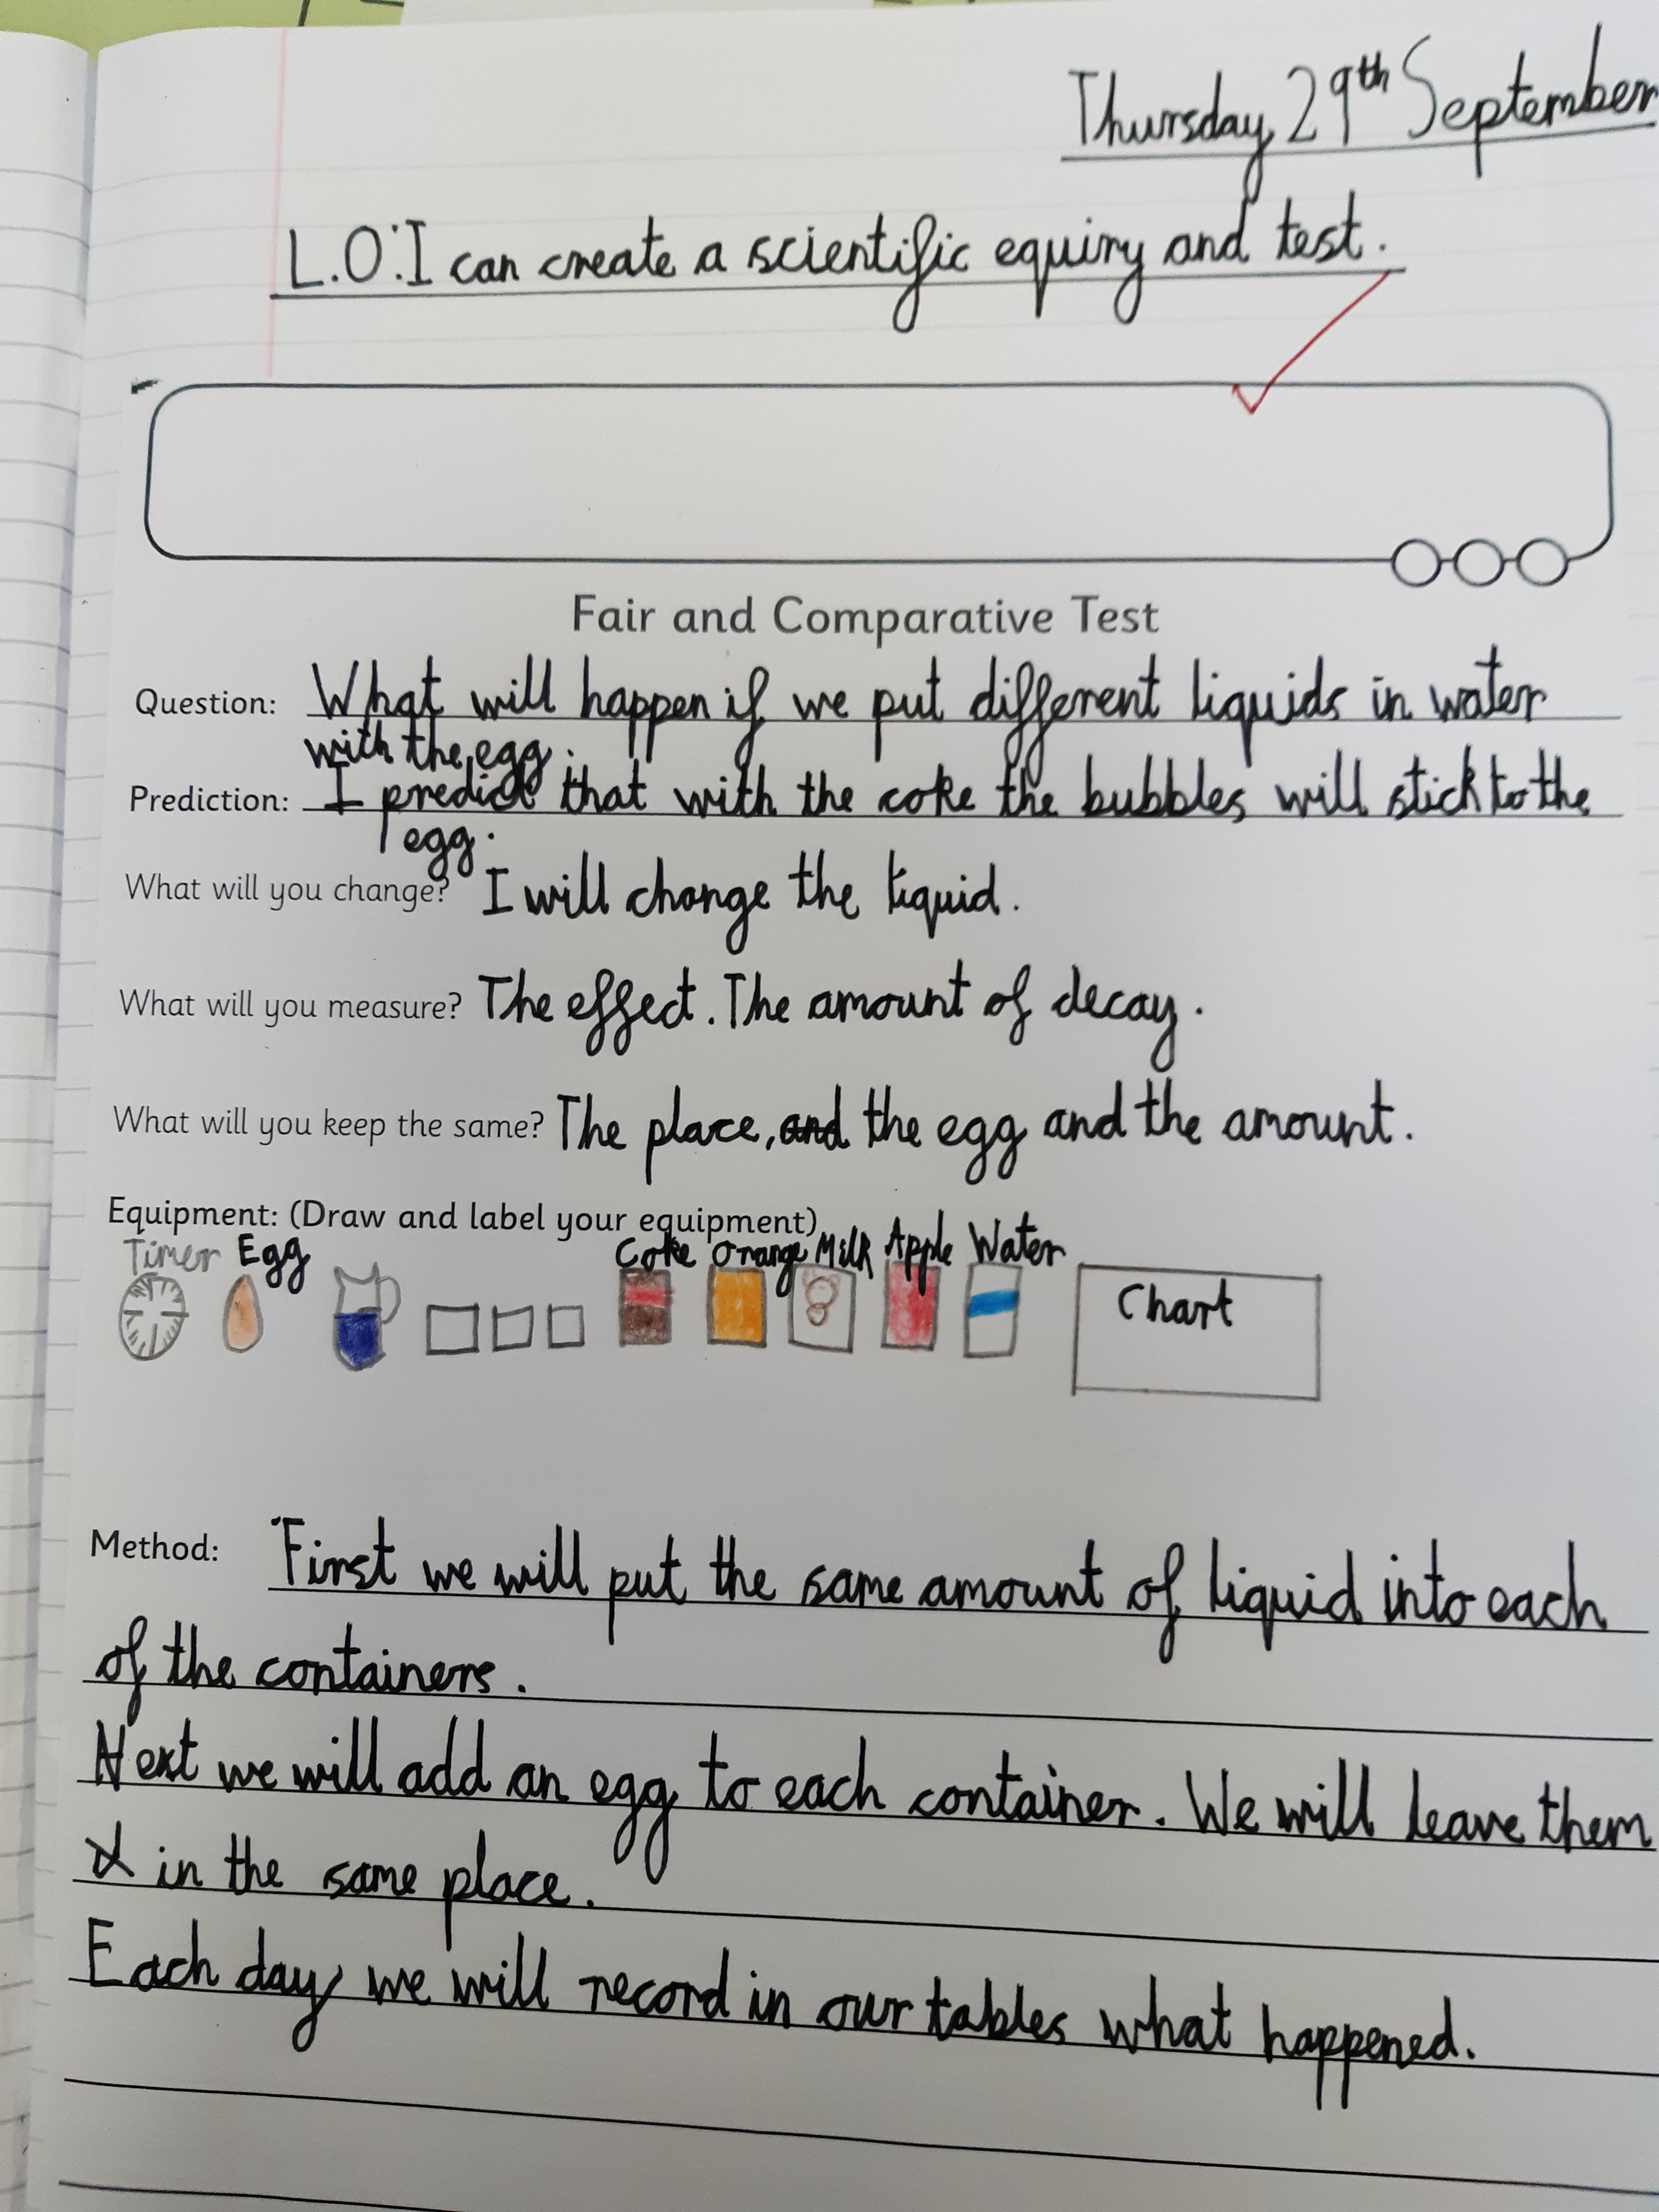 Thursday, 29th September
L.O: I can create a scientific equiry and test.
Fair and Comparative Test
Question: What will happen if we put different liquids in water
with the egg.
Prediction: I predict that with the coke the bubbles will stick to the
egg.
What will you change? I will change the liquid.
What will you measure? The effect. The amount of decay.
What will you keep the same? The place, and the egg and the amount.
Equipment: (Draw and label your equipment)
Timer Egg Coke Orange Milk Apple Water
Chart
Method: First we will put the same amount of liquid into each
of the containers.
Next we will add an egg to each container. We will leave them
in the same place.
Each day, we will record in our tables what happened.